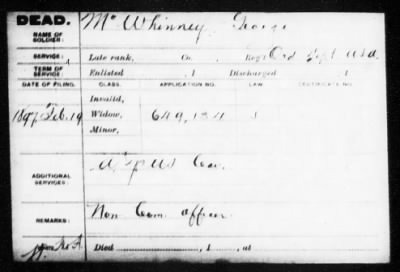 DEAD. McWhinney George
NAME OF SOLDIER:
SERVICE: Late rank, Co. Reg't Ord Dept USA.
TERM OF SERVICE: Enlisted , 1 Discharged , 1
DATE OF FILING. CLASS. APPLICATION NO. LAW. CERTIFICATE NO.
Invalid,
1897 Feb. 19 Widow, 649,134
Minor,
ADDITIONAL SERVICES: US Cav.
REMARKS: Non Com. Officer
Died , 1 , at